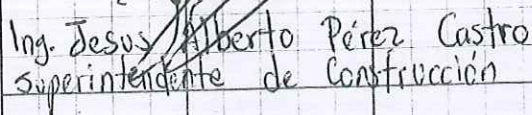 Ing. Jesus Alberto Pérez Castro
Superintendente de Construcción